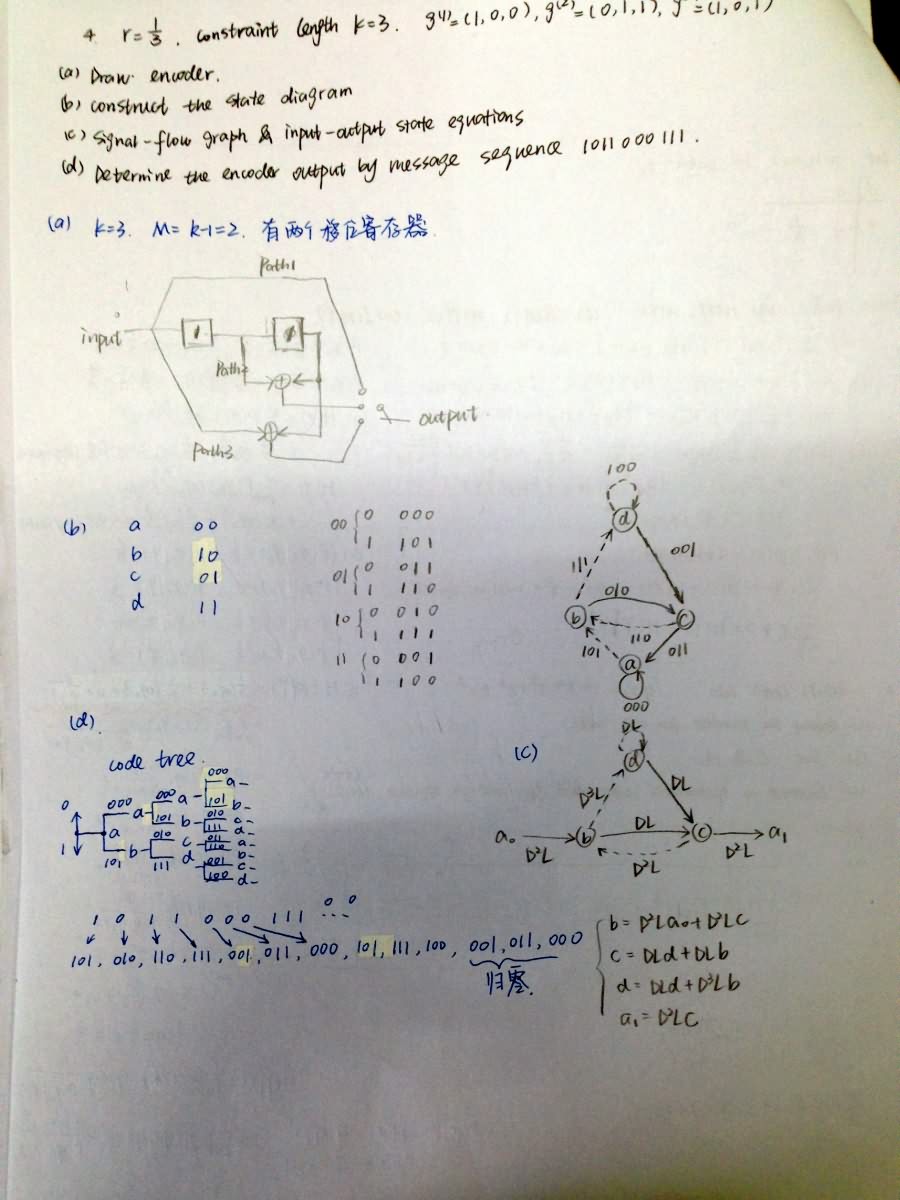 4 r=1/3. constraint length k=3. g⁽¹⁾=(1,0,0), g⁽²⁾=(0,1,1), g =(1,0,1)
(a) Draw encoder.
(b) construct the state diagram
(c) signal-flow graph & input-output state equations
(d) Determine the encoder output by message sequence 1011000111.
(a) k=3. M=k-1=2. 有两个移位寄存器.
Path1
input
Path2
output
Path3
(b) a 00
b 10
c 01
d 11
00 { 0 000
1 101
01 { 0 011
1 110
10 { 0 010
1 111
11 { 0 001
1 100
100
d
111 001
010
b c
110
101 011
a
000
(d).
code tree.
0 000 a 000 a 000 a
101 b
101 b 010 c
111 d
a
1 101 b 010 c 011 a
110 b
111 d 001 c
100 d
1 0 1 1 0 0 0 1 1 1 0 0
101, 010, 110, 111, 001, 011, 000, 101, 111, 100, 001, 011, 000
归零.
(c)
DL
d
D³L DL
a₀ D²L b DL c D²L a₁
D²L
b = D²La₀ + D²LC
c = DLd + DLb
d = DLd + D³Lb
a₁ = D²LC